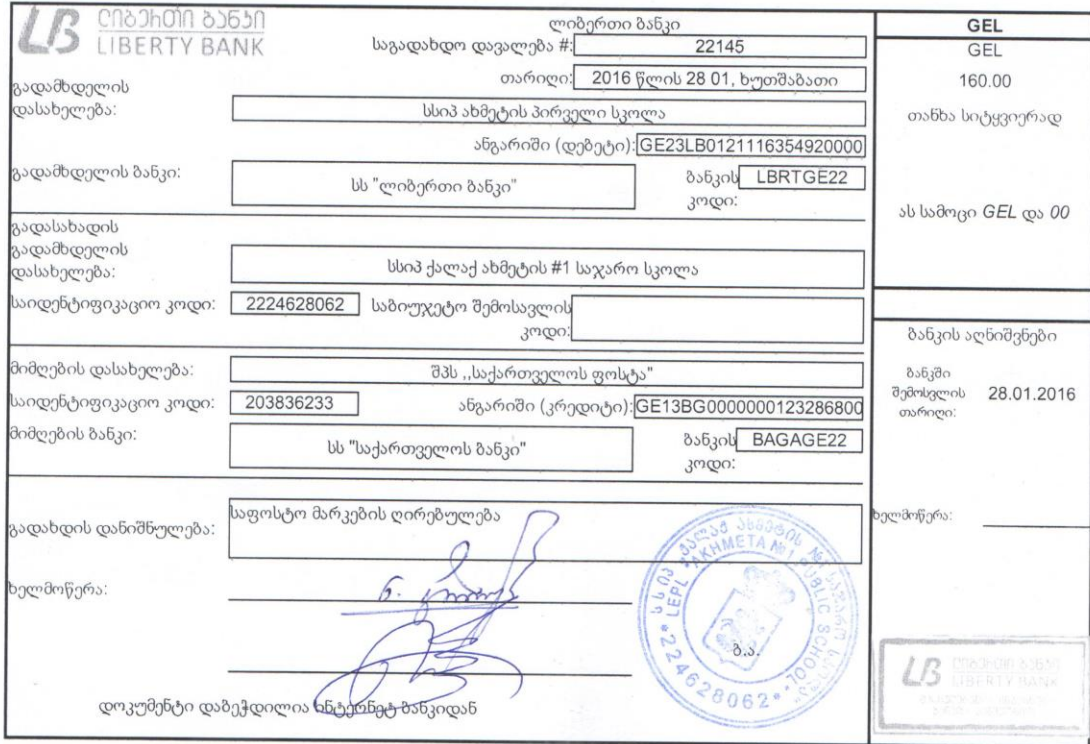 ლიბერთი ბანკი
LIBERTY BANK
ლიბერთი ბანკი
საგადახდო დავალება #: 22145
თარიღი: 2016 წლის 28 01, ხუთშაბათი
გადამხდელის
დასახელება: სსიპ ახმეტის პირველი სკოლა
ანგარიში (დებეტი): GE23LB0121116354920000
გადამხდელის ბანკი: სს "ლიბერთი ბანკი" ბანკის კოდი: LBRTGE22
გადასახადის
გადამხდელის
დასახელება: სსიპ ქალაქ ახმეტის #1 საჯარო სკოლა
საიდენტიფიკაციო კოდი: 2224628062 საბიუჯეტო შემოსავლის
კოდი:
მიმღების დასახელება: შპს ,,საქართველოს ფოსტა"
საიდენტიფიკაციო კოდი: 203836233 ანგარიში (კრედიტი): GE13BG0000000123286800
მიმღების ბანკი: სს "საქართველოს ბანკი" ბანკის კოდი: BAGAGE22
გადახდის დანიშნულება: საფოსტო მარკების ღირებულება
ხელმოწერა:
ბ.ა.
დოკუმენტი დაბეჭდილია ინტერნეტ ბანკიდან
GEL
GEL
160.00
თანხა სიტყვიერად
ას სამოცი GEL და 00
ბანკის აღნიშვნები
ბანკში
შემოსვლის 28.01.2016
თარიღი:
ხელმოწერა:
სსიპ ქალაქ ახმეტის №1 საჯარო სკოლა
LEPL AKHMETA №1 PUBLIC SCHOOL
224628062
ლიბერთი ბანკი
LIBERTY BANK